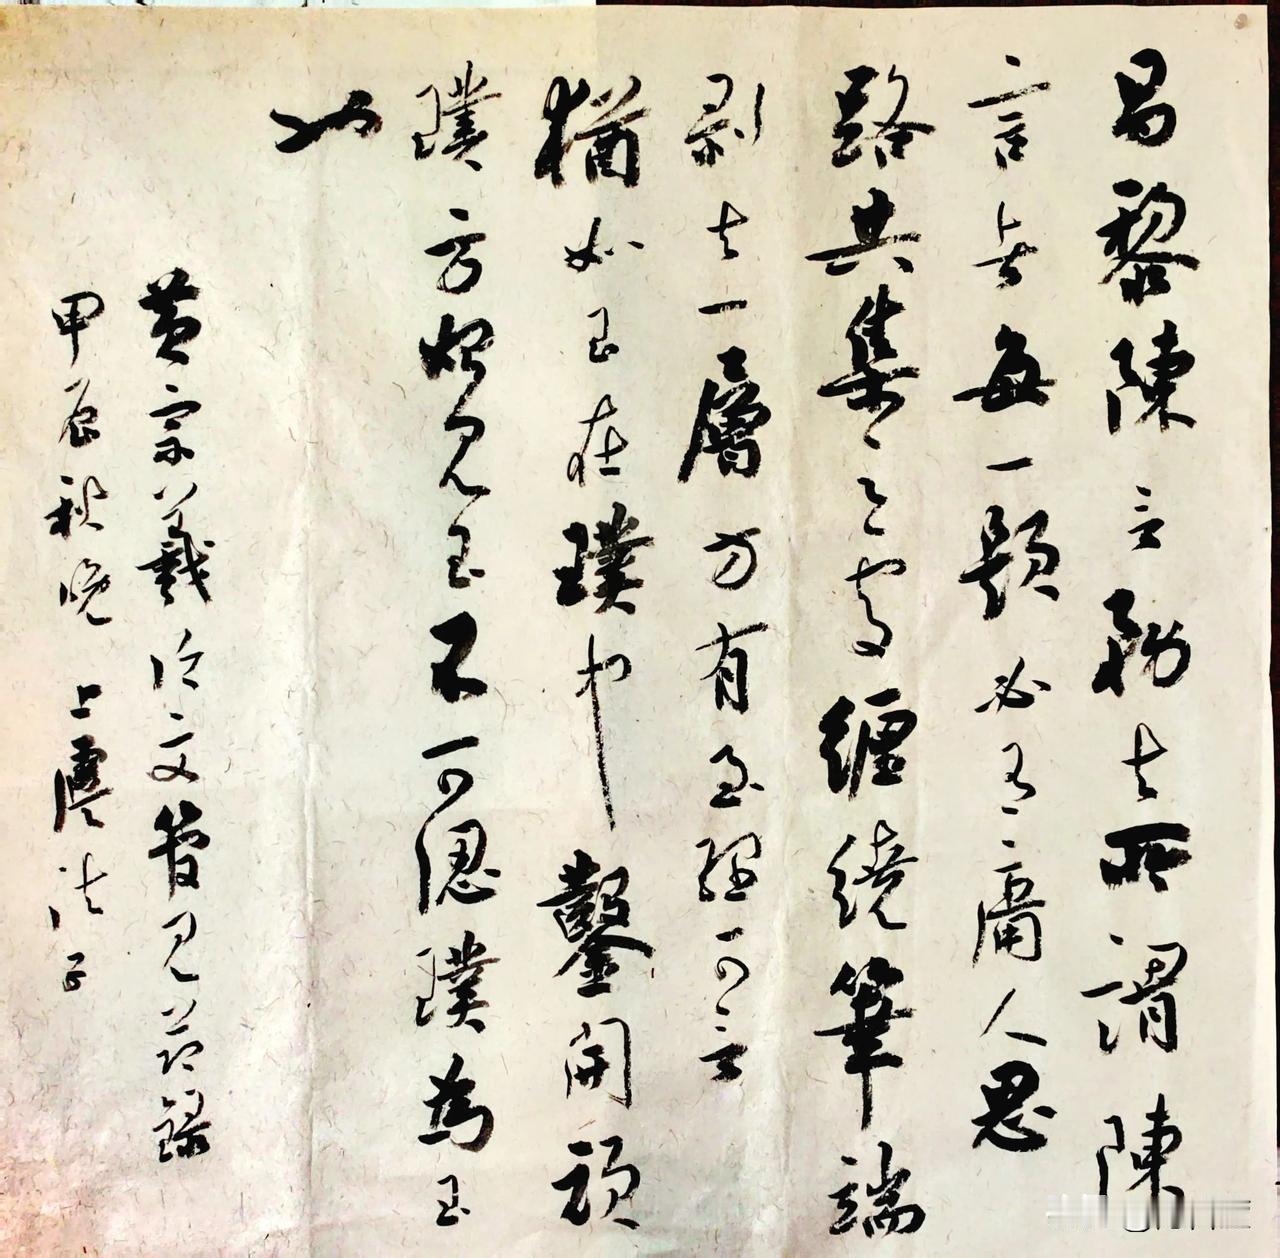 昌黎陳言務去所謂陳
言者每一題必有庸人思
路共集之處纏繞筆端
剝去一層方有至理可言
猶如玉在璞中鑿開頑
璞方始見玉不可認璞為玉
也
黄宗羲论文管見节錄
甲辰秋晚上虞法正